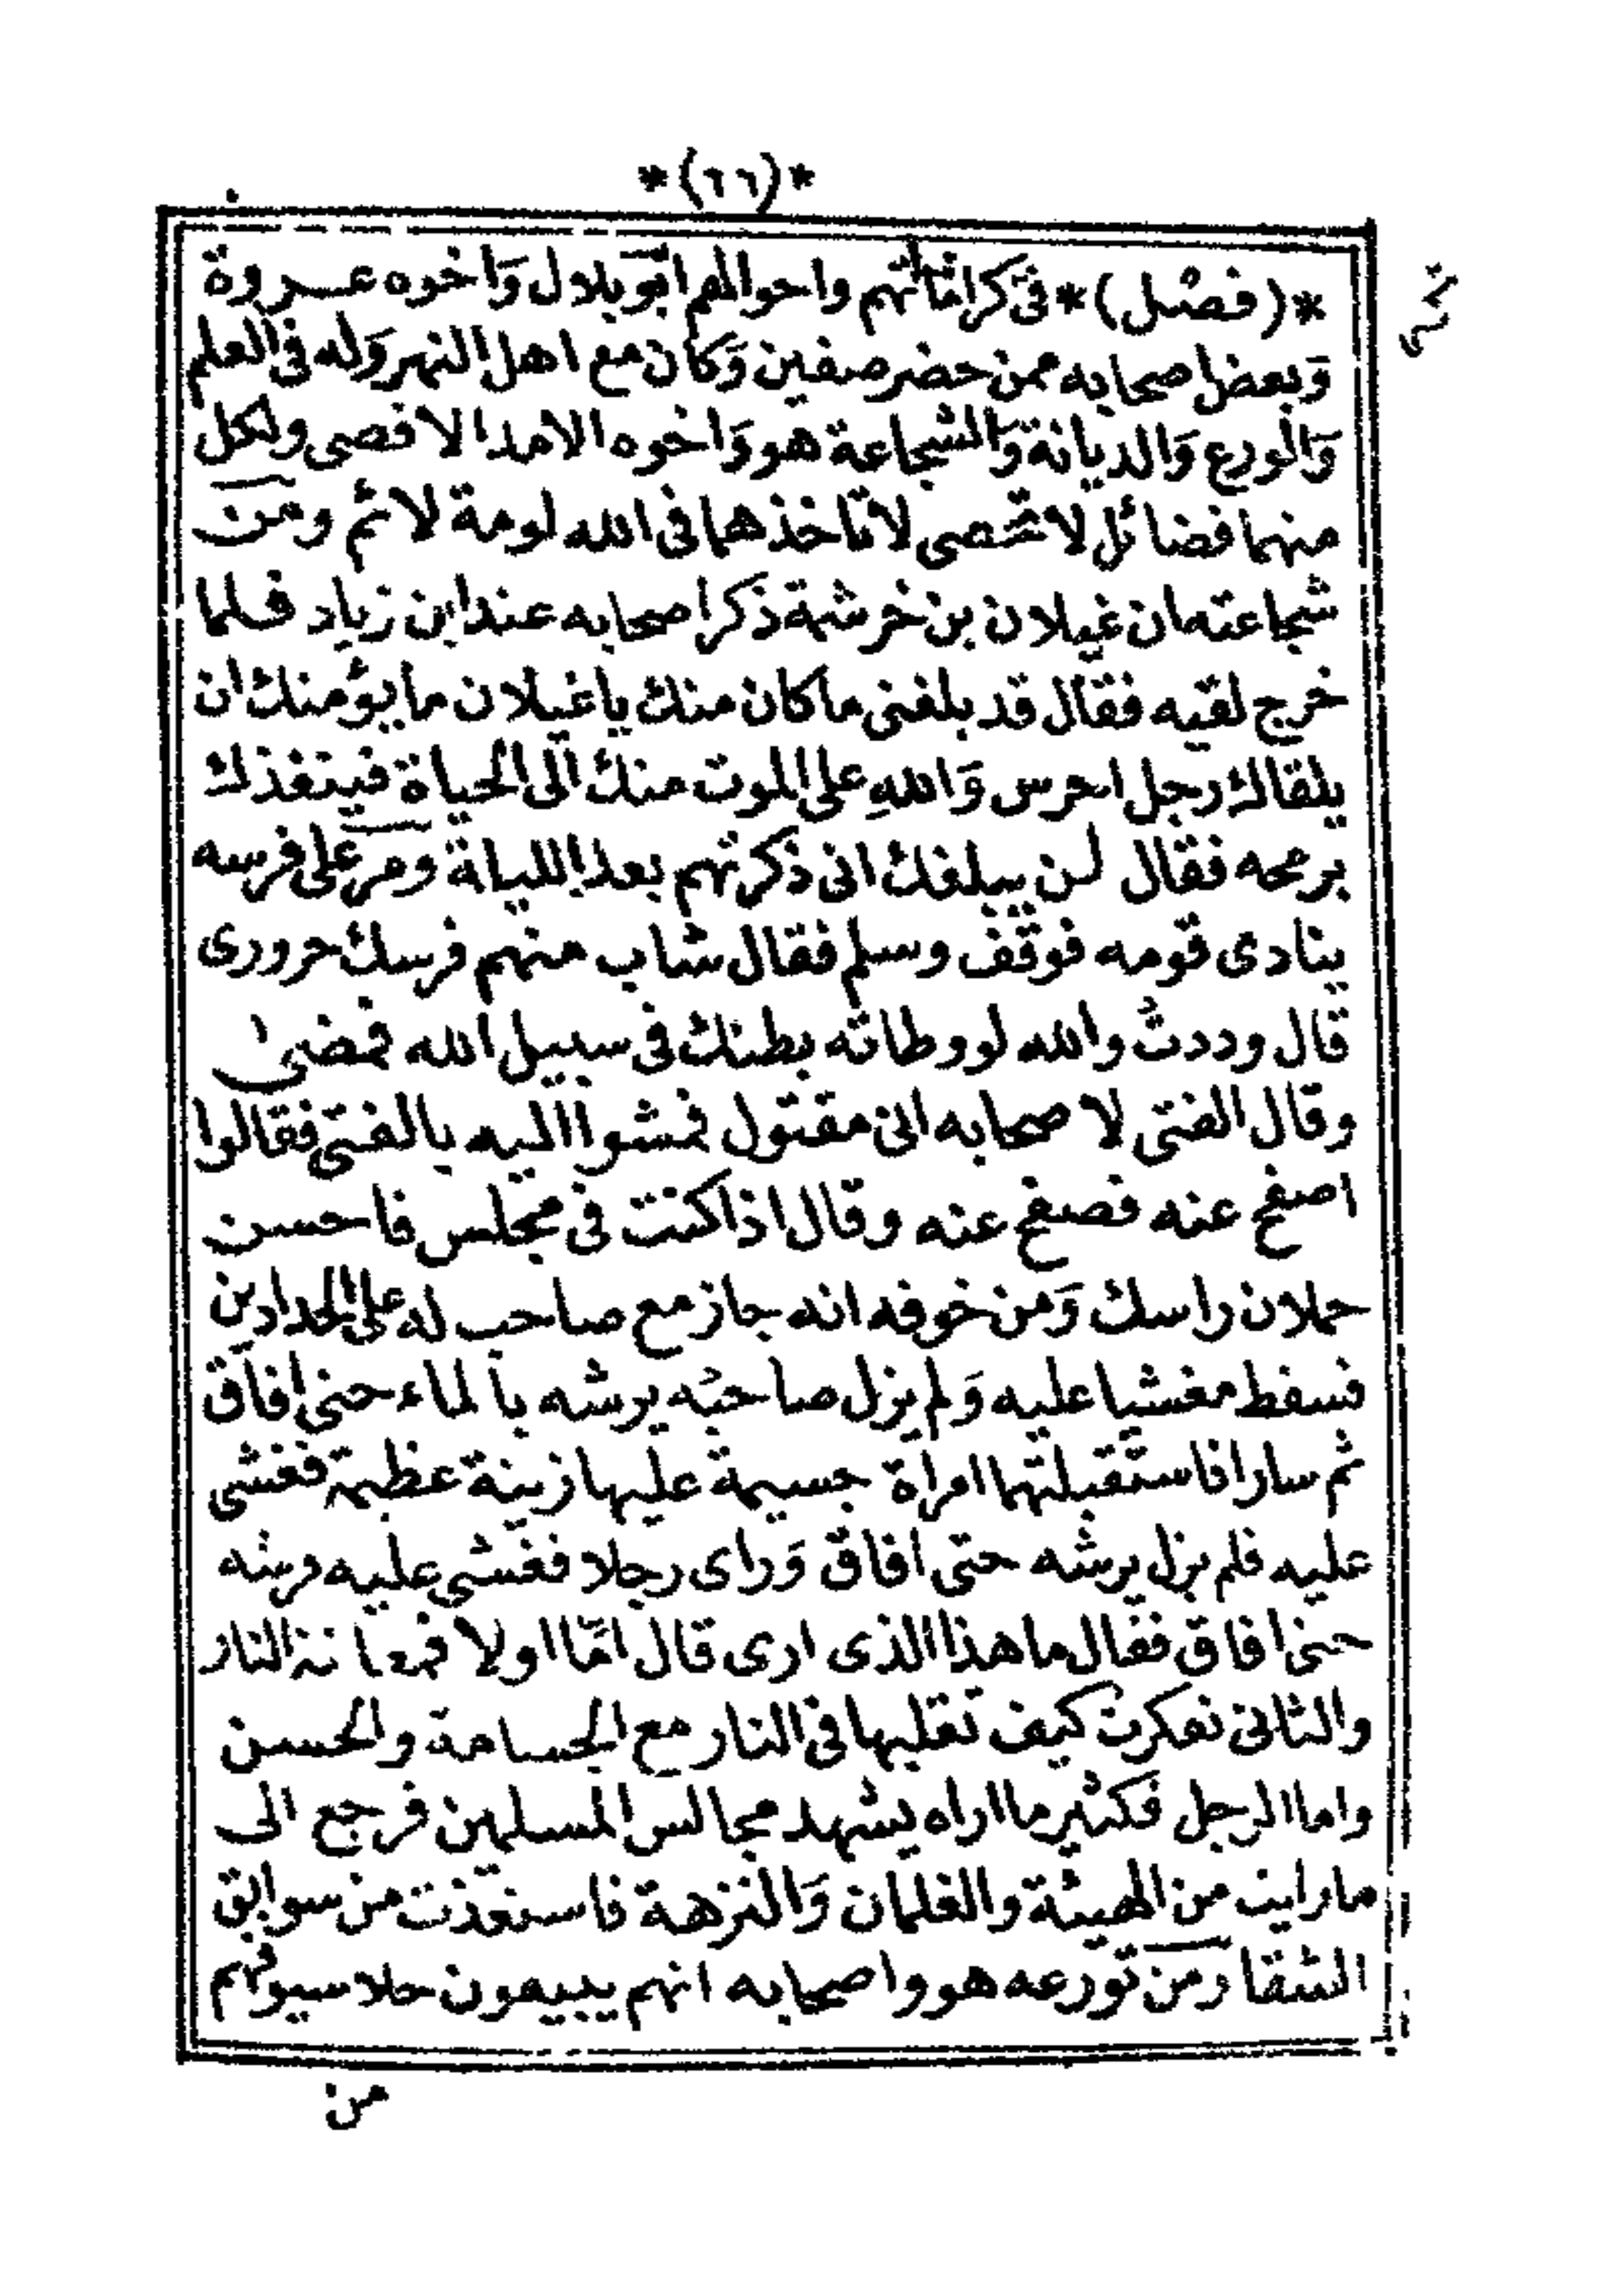 *(٦٦)*
*(فصْل)* فى كراماتهم واحوالهم ابَو بلال وَاخوه عروة
وَبعض اصحابه ممن حضر صفين وَكان مع اهل النهر وَله فى العلم
وَالورع وَالديانة وَالشجاعة هو وَاخوه الامد الاقصى ولكل
منهما فضائل لا تحصى لا تاخذهما فى الله لومة لائم ومن
شجاعته ان غيلان بن خرشة ذكر اصحابه عند ابن زياد فلما
خرج لقيه فقال قد بلغنى ما كان منك يا غيلان ما يؤمنك ان
يلقاك رجل احرس وَاللهِ على الموت منك الى الحياة فينفذك
برمحه فقال لن يبلغك انى ذكرتهم بعد الليلة ومر على فرسه
بنادى قومه فوقف وسلم فقال شاب منهم فرسك حرورى
قال وددت والله لو وطاته بطنك فى سبيل الله فمضىٰ
وقال الفتى لاصحابه انى مقتول فمشوا اليه بالفتى فقالوا
اصفح عنه فصفح عنه وقال اذا كنت فى مجلس فاحسن
حملان راسك وَمن خوفه انه جاز مع صاحب له على الحدادين
فسقط مغشيا عليه وَلم يزل صاحبُه يرشه بالماء حتى افاق
ثم سارا فاستقبلتهما امراة جسيمة عليها زينة عظيمة فغشى
عليه فلم يزل يرشه حتى افاق وَراى رجلا فغشى عليه فرشه
حتى افاق فقال ما هذا الذى ارى قال امَّا اولا فمعاينة النار
والثانى تفكرت كيف تقلبها فى النار مع الجسامة والحسن
واما الرجل فكثير ما اراه يشهد مجالس المسلمين فرجع الى
ما رايت من الهيئة والغلمان وَالنزهة فاستعذت من سوابق
الشقا ومن تورعه هو واصحابه انهم يبيعون حلا سيوفهم
من